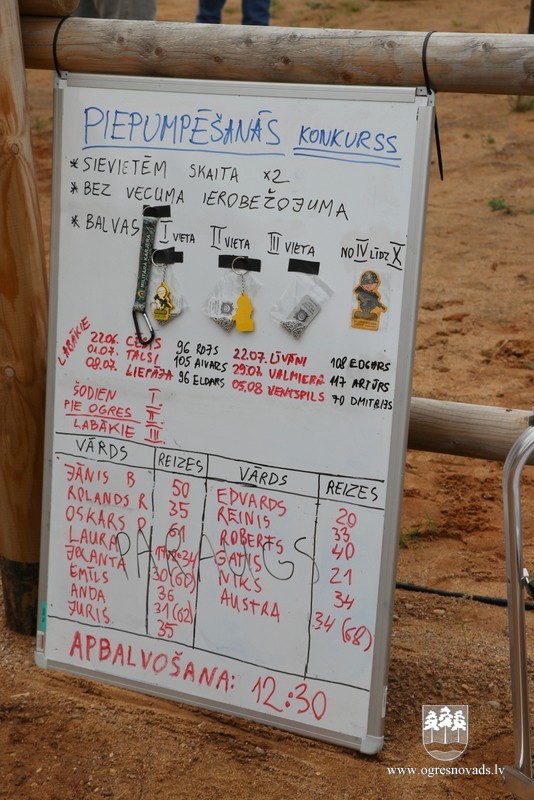 PIEPUMPĒŠANĀS KONKURSS
* SIEVIETĒM SKAITA x2
* BEZ VECUMA IEROBEŽOJUMA
* BALVAS I VIETA II VIETA III VIETA NO IV LĪDZ X
LABĀKIE
22.06. CĒSIS 96 ROJS 22.07. LĪVĀNI 108 EDGARS
01.07. TALSI 105 AIVARS 29.07. VALMIERA 117 ARTŪRS
08.07. LIEPĀJA 96 ELDARS 05.08 VENTSPILS 70 DMITRIJS
ŠODIEN I
PIE OGRES II
LABĀKIE III
VĀRDS REIZES VĀRDS REIZES
JĀNIS B 50 EDVARDS 20
ROLANDS R 35 REINIS 33
OSKARS P 61 ROBERTS 40
LAURA GATIS 21
JOLANTA 30(60) NIKS 34
EMĪLS 36 AUSTRA 34 (68)
ANDA 31(62)
JURIS 35
PARAUGS
APBALVOŠANA: 12:30
www.ogresnovads.lv